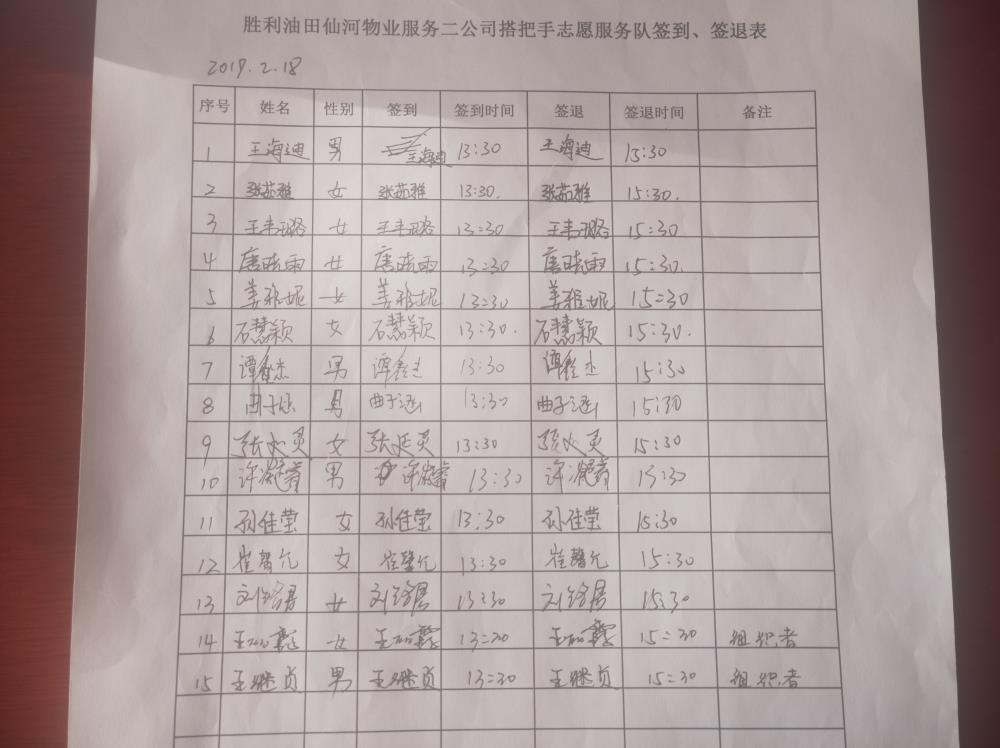 胜利油田仙河物业服务二公司搭把手志愿服务队签到、签退表
2019.2.18
序号 姓名 性别 签到 签到时间 签退 签退时间 备注
1 王海迪 男 王海迪 13:30 王海迪 15:30
2 张茹雅 女 张茹雅 13:30. 张茹雅 15:30.
3 王韦璐 女 王韦璐 13:30 王韦璐 15:30
4 唐晓雨 女 唐晓雨 13:30 唐晓雨 15:30.
5 姜雅妮 女 姜雅妮 13:30 姜雅妮 15:30
6 石慧颖 女 石慧颖 13:30. 石慧颖 15:30.
7 谭鑫杰 男 谭鑫杰 13:30 谭鑫杰 15:30
8 曲子涵 男 曲子涵 13:30 曲子涵 15:30
9 张 女 张 13:30 张 15:30
10 许凝睿 男 许凝睿 13:30 许凝睿 15:30
11 孙佳莹 女 孙佳莹 13:30 孙佳莹 15:30
12 崔馨允 女 崔馨允 13:30 崔馨允 15:30
13 刘 女 刘 13:30 刘 15:30
14 王 女 王 13:30 王 15:30 组织者
15 王继贞 男 王继贞 13:30 王继贞 15:30 组织者